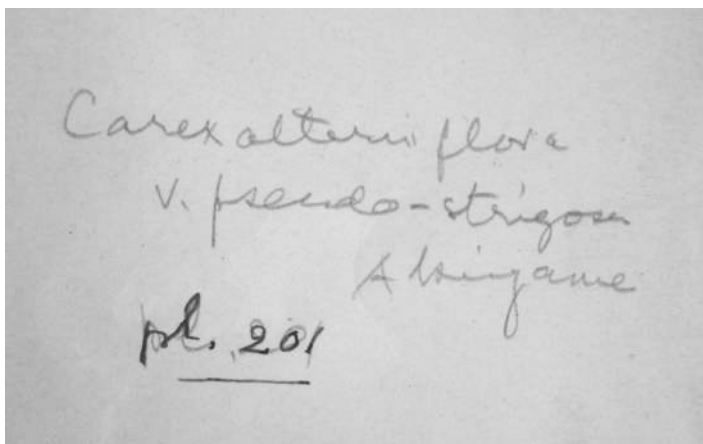 Carex alterniflora
v. pseudo-strigosa
Akiyama
pl. 201